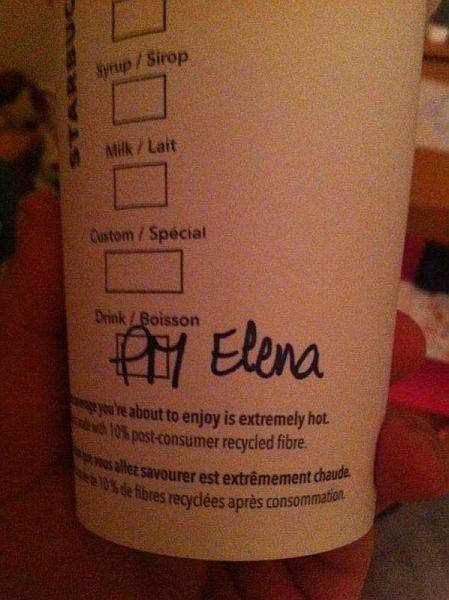 STARBUC
Syrup / Sirop
Milk / Lait
Custom / Spécial
Drink / Boisson
PM Elena
you're about to enjoy is extremely hot.
with 10% post-consumer recycled fibre.
que vous allez savourer est extrêmement chaude.
de 10 % de fibres recyclées après consommation.